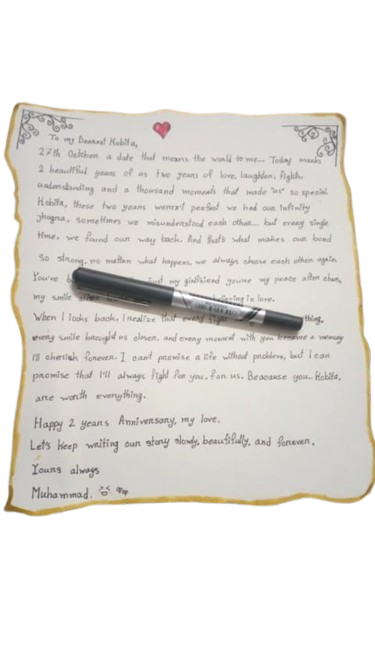 To my Dearest Kobita,
27th October a date that means the world to me... Today marks
2 beautiful years of us two years of love, laughter, fights
understanding and a thousand moments that made "us" so special
Kobita, these two years weren't perfect we had our infinity
jhogra, sometimes we misunderstood each other... but every single
time, we found our way back. And that's what makes our bond
so strong, no matter what happens, we always chose each other again.
You're my girlfriend you're my peace after chaos,
my smile in love.
When I looks back, I realize that every fight thing,
every smile brought us closer, and every moment with you became a memory
I'll cherish forever. I can't promise a life without problem, but I can
promise that I'll always fight for you, for us. Beacause you.. Kobita,
are worth everything.
Happy 2 years Anniversary, my love.
Let's keep writing our story slowly, beautifully, and forever.
Yours always
Muhammad.